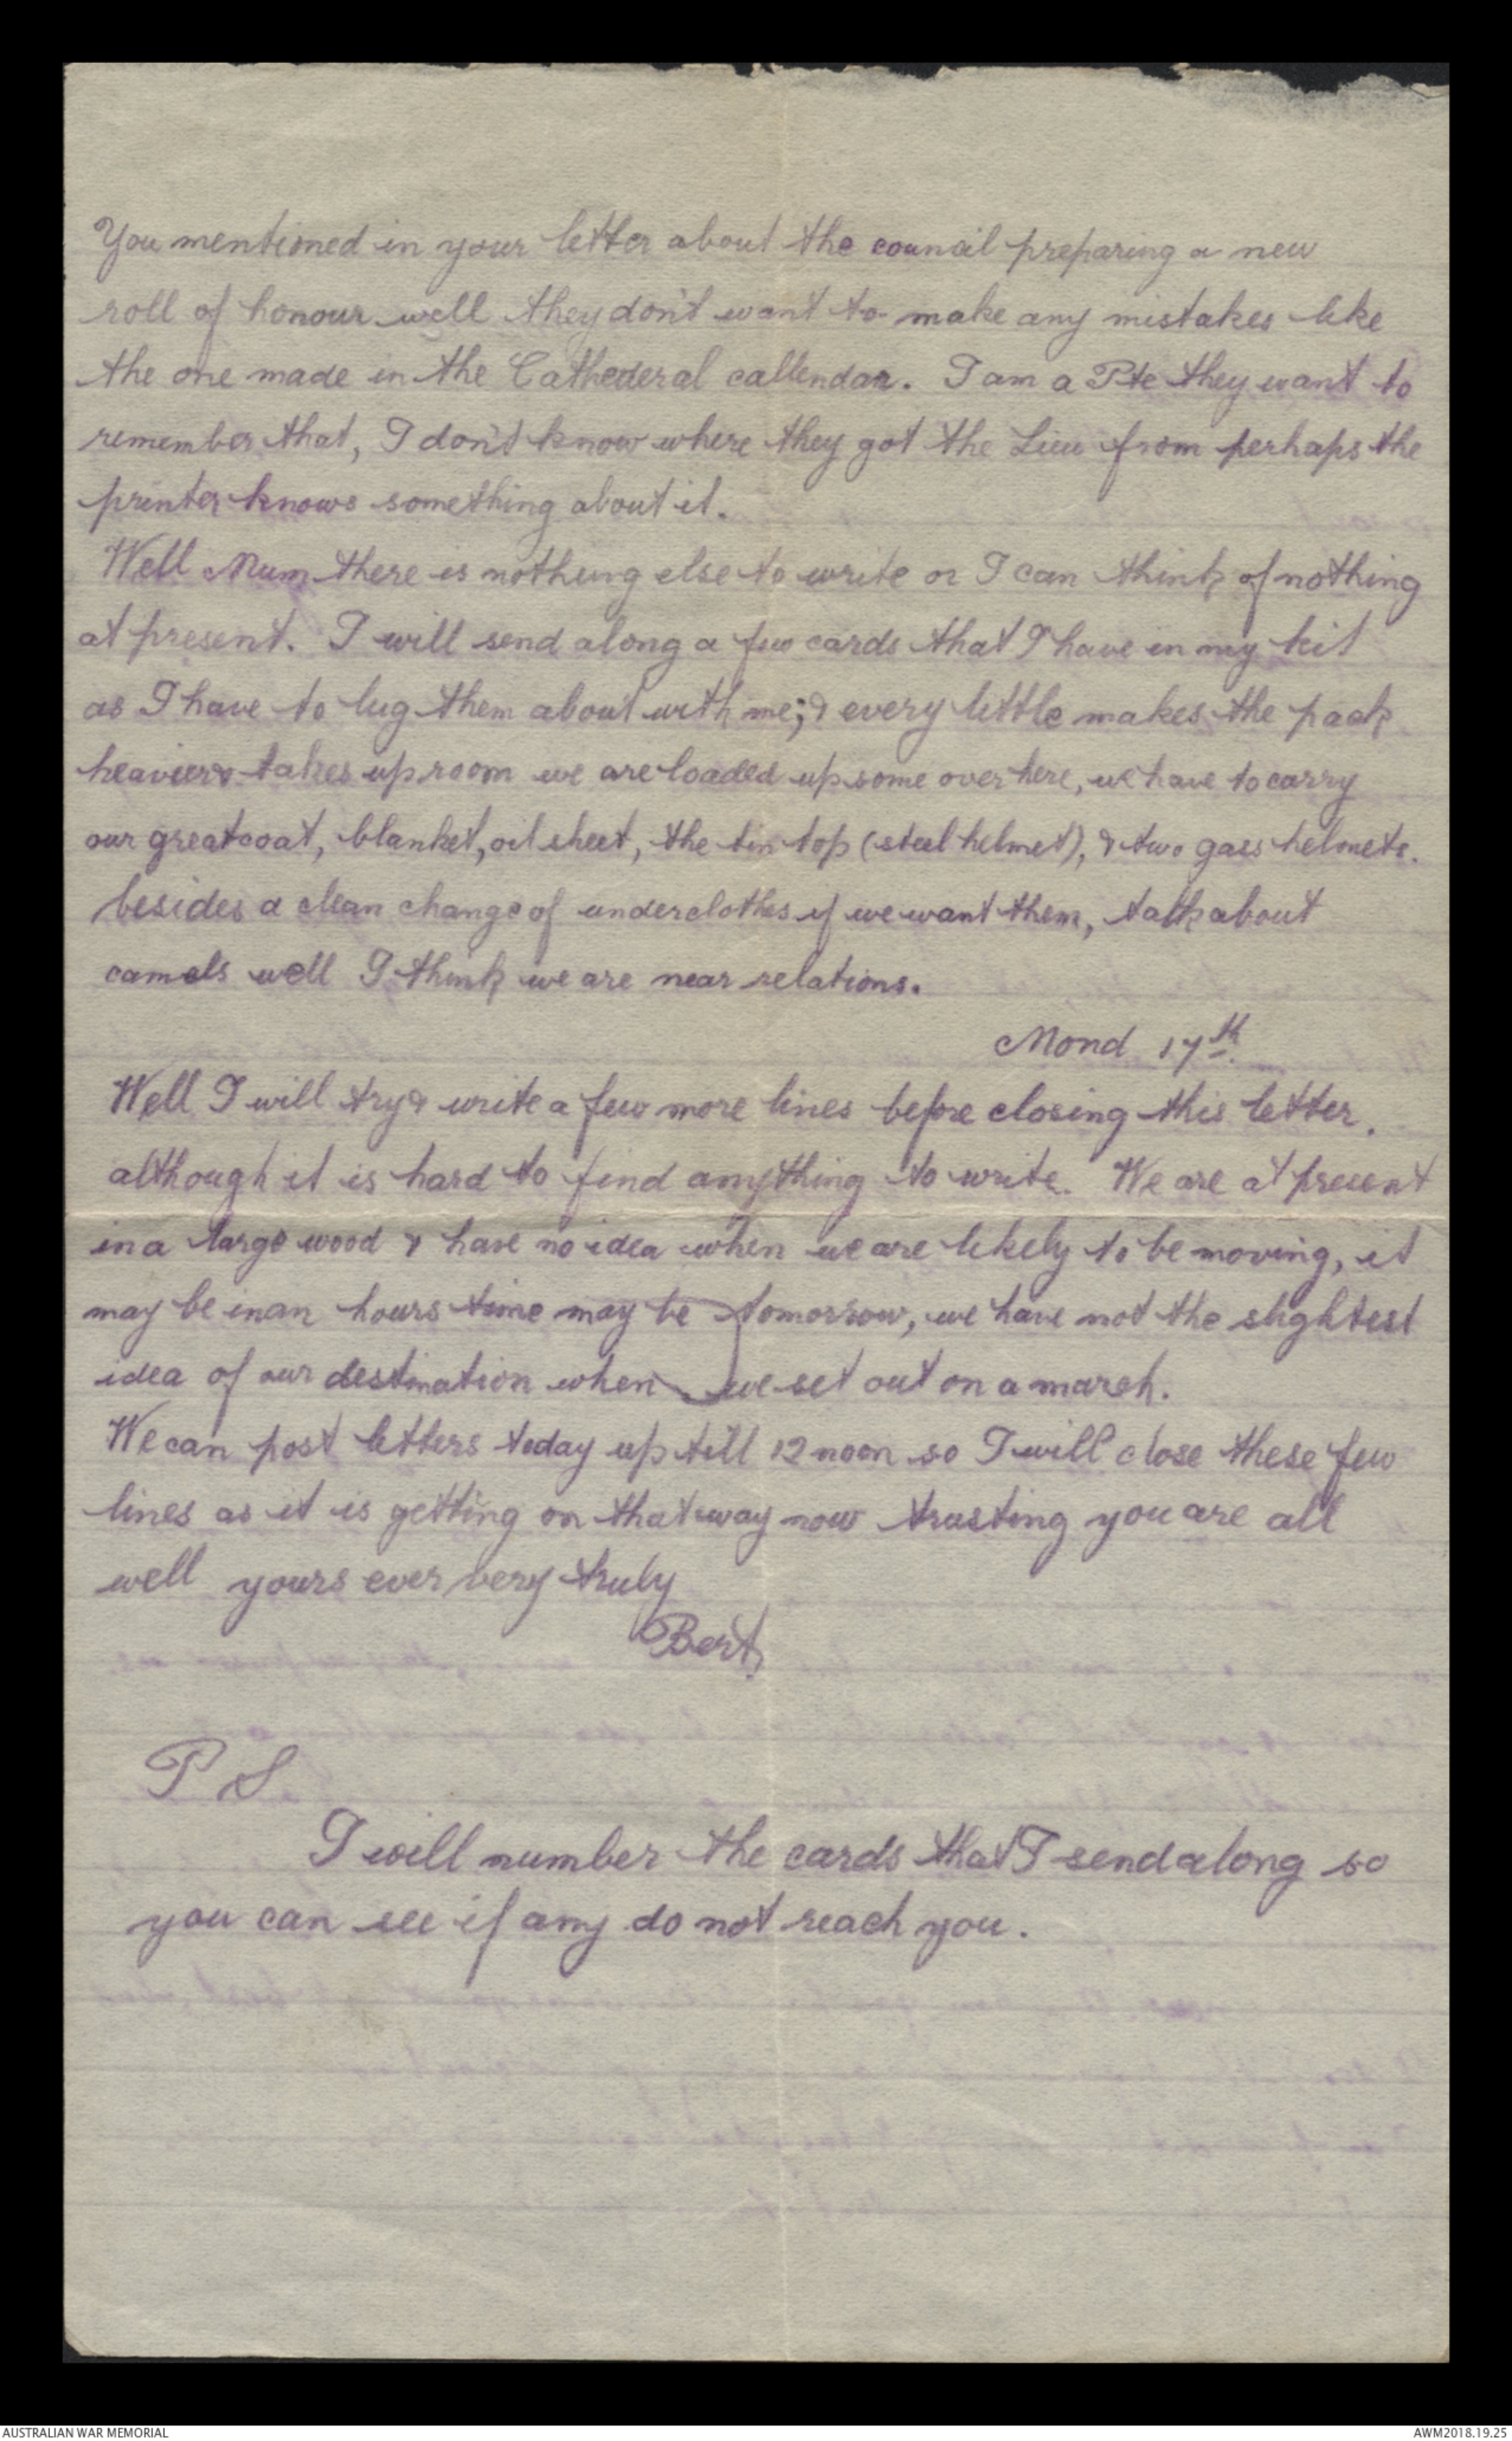 You mentioned in your letter about the council preparing a new
roll of honour well they don't want to make any mistakes like
the one made in the Cathederal callendar. I am a Pte they want to
remember that, I don't know where they got the Lieu from perhaps the
printer knows something about it.
Well Mum there is nothing else to write or I can think of nothing
at present. I will send along a few cards that I have in my kit
as I have to lug them about with me; & every little makes the pack
heavier & takes up room we are loaded up some over here, we have to carry
our greatcoat, blanket, oil sheet, the tin top (steel helmet), & two gass helmets.
besides a clean change of underclothes if we want them, talk about
camels well I think we are near relations.
Mond 17th.
Well I will try & write a few more lines before closing this letter.
although it is hard to find anything to write. We are at present
in a large wood & have no idea when we are likely to be moving, it
may be in an hours time may be tomorrow, we have not the slightest
idea of our destination when we set out on a march.
We can post letters today up till 12 noon so I will close these few
lines as it is getting on that way now trusting you are all
well yours ever very truly
Bert
P S.
I will number the cards that I send along so
you can see if any do not reach you.
AUSTRALIAN WAR MEMORIAL
AWM2018.19.25